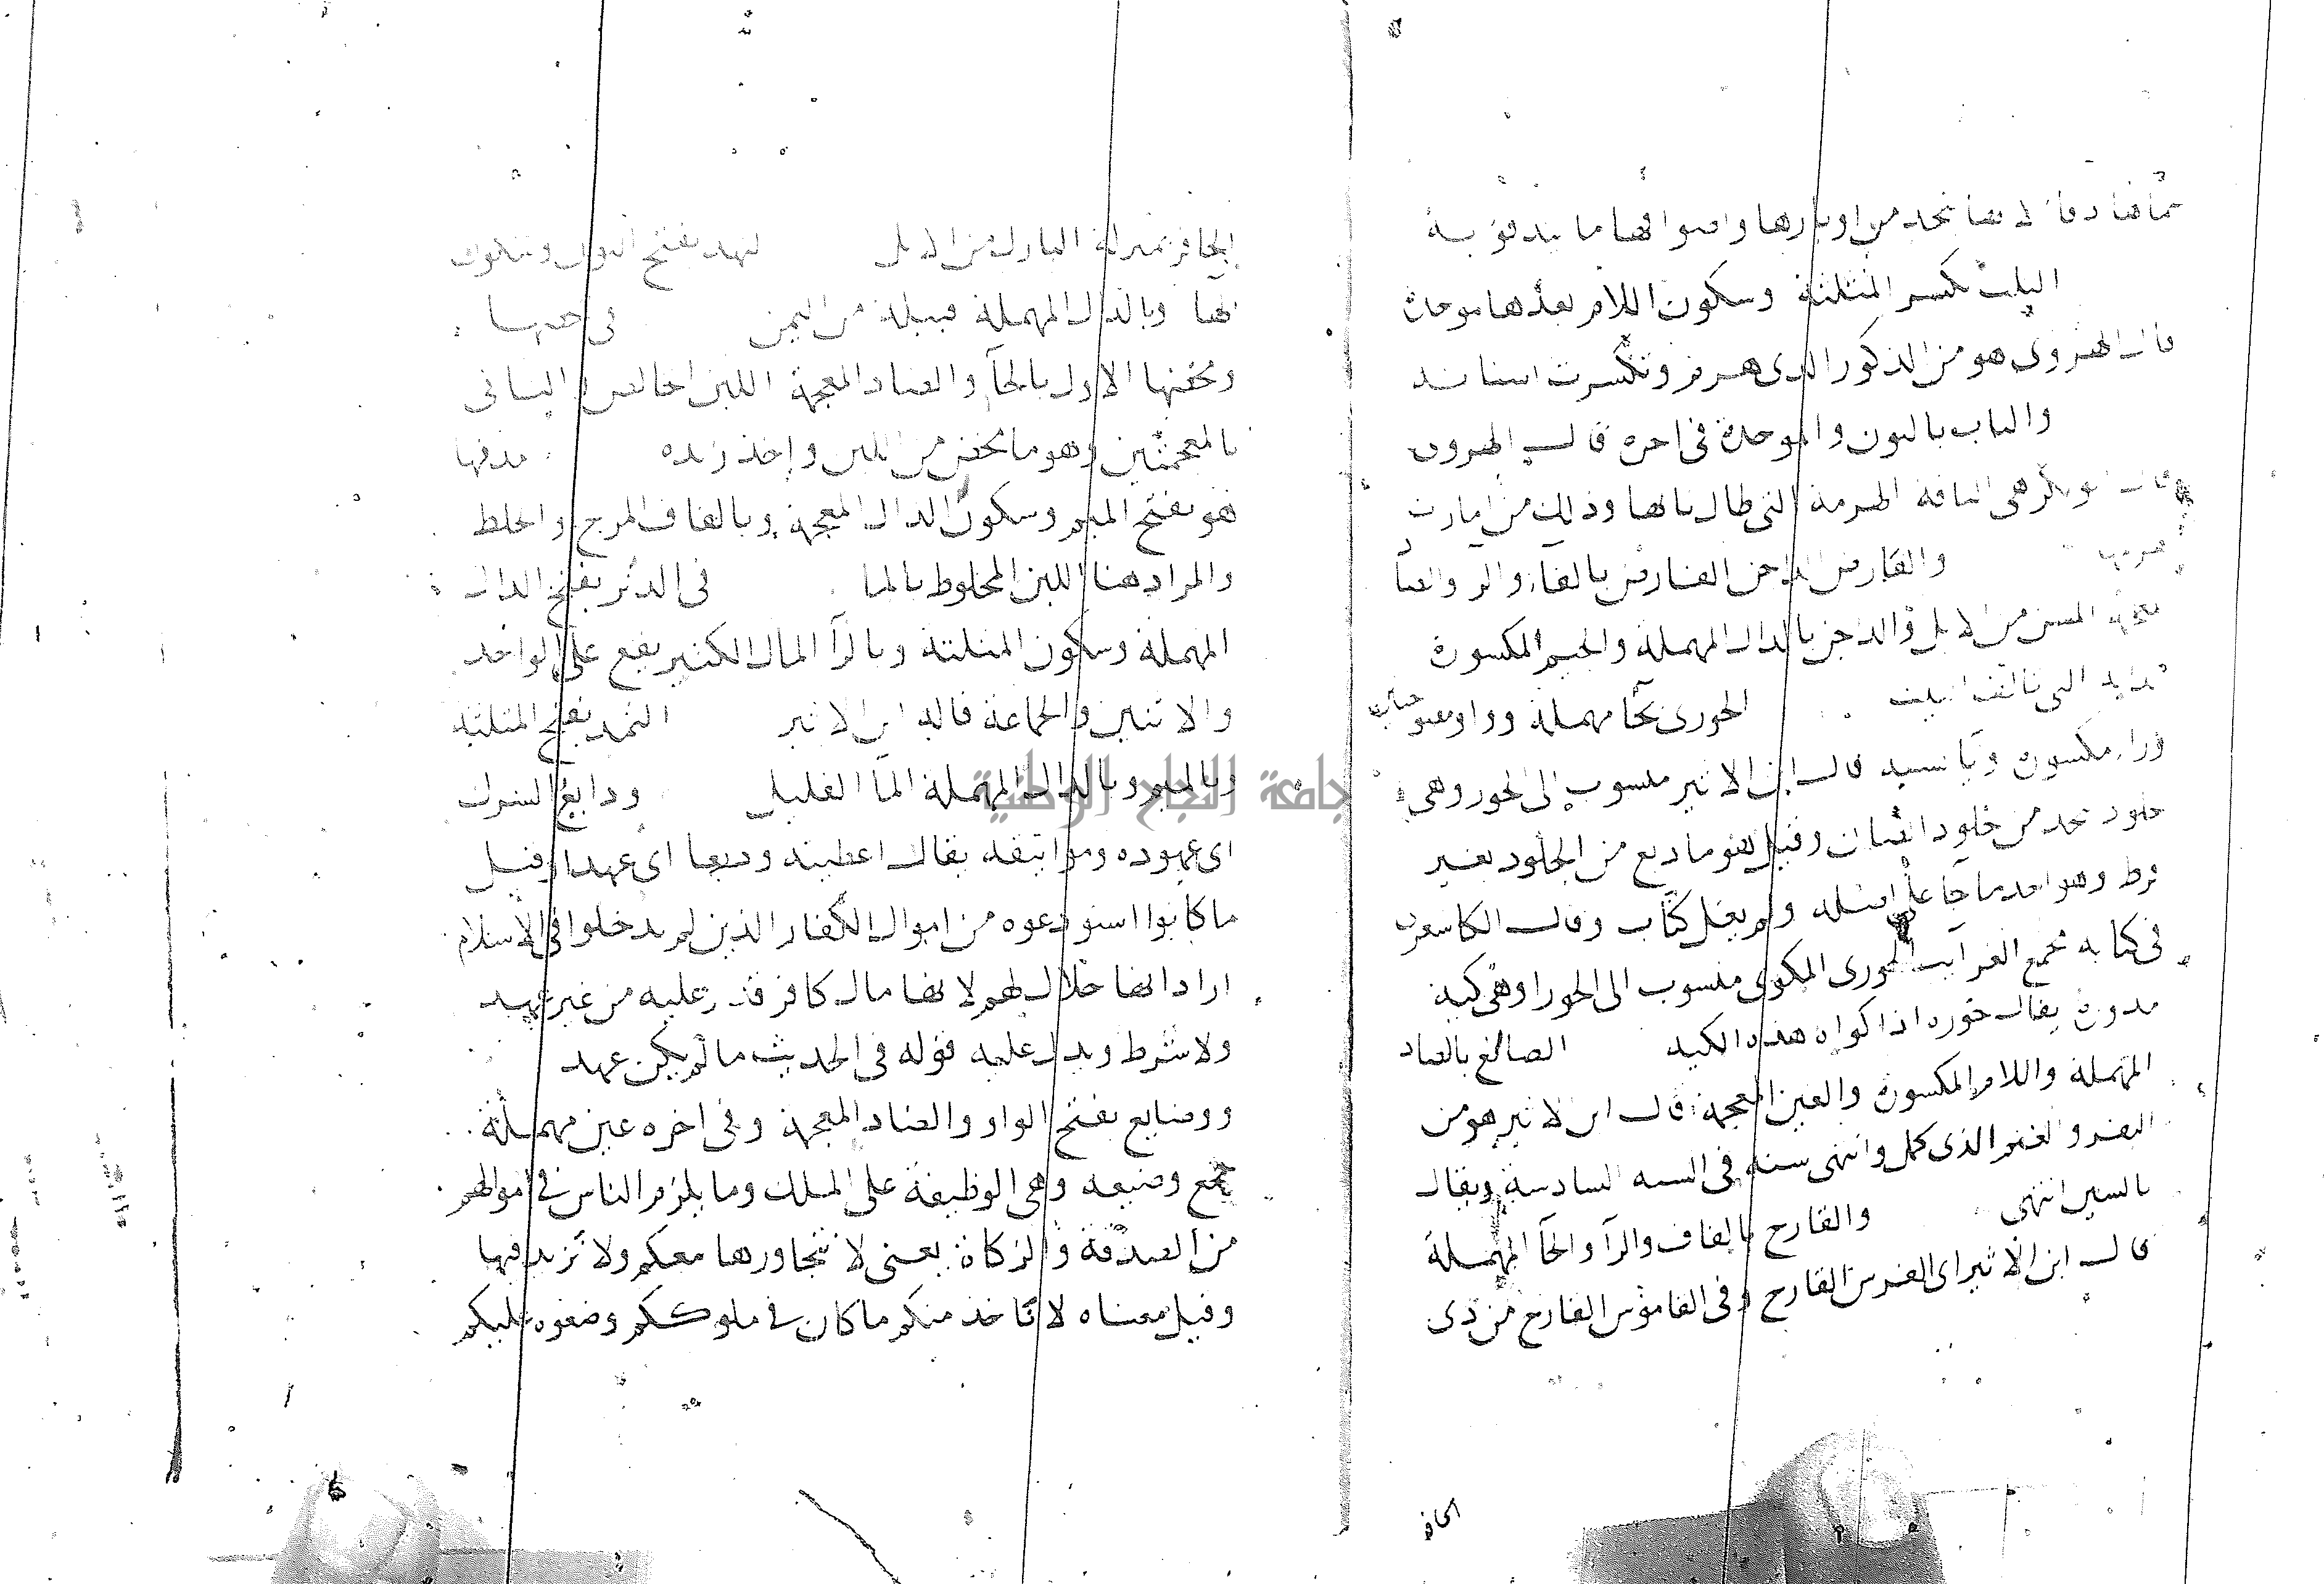 من اوبارها واصوافها ما يتدفؤ به
الثلب بكسر المثلثة وسكون اللام بعدها موحدة
قال الهروى هو من الذكور الذى هرم وتكسرت اسنانه
والناب بالنون والموحدة فى اخره قال الهروى
هى الناقة الهرمة التى طال نابها وذلك من امارت
هرمها والفارض الداجن الفارض بالفاء والرا والضا
معجمة المسن من الابل والداجن بالدال المهملة والجيم المكسورة
الدابه التى تالف البيت الحورى بحآ مهملة وواو مفتوحتان
ورا مكسورة ويا نسبه قال ابن الاثير منسوب الى الحور وهى
جلود تتخذ من جلود الضان وقيل هو ما دبغ من الجلود بغير
قرظ وهو احد ما جآ على اصله ولم يعل كناب وقال الكاشغرى
فى كتابه مجمع الغرايب الحورى المكوى منسوب الى الحورا وهى كية
مدورة يقال حوره اذا كواه هذه الكيه الصالغ بالصاد
المهملة واللام المكسورة والغين المعجمة قال ابن الاثير هو من
البقر والغنم الذى كمل وانتهى سنه فى السنه السادسة ويقال
بالسين انتهى والقارح بالقاف والرآ والحآ المهملة
قال ابن الاثير اى الفرس القارح وفى القاموس القارح من ذى
الحافر
الحافر بمنزلة البازل من الابل نهد بفتح النون وسكون
الها وبالدال المهملة قبيلة من اليمن فى محضها
ومخضها الاول بالحآ والضاد المعجمة اللبن الخالص الثانى
بالمعجمتين وهو ما مخض من اللبن واخذ زبده مذقها
هو بفتح الميم وسكون الذال المعجمة وبالقاف المزج والخلط
والمراد هنا اللبن المخلوط بالما فى الدثر بفتح الدال
المهملة وسكون المثلثة وبالرآ المال الكثير يقع على الواحد
والاثنين والجماعة قاله ابن الاثير الثمد بفتح المثلثة
وبالميم وبالدال المهملة المآ القليل ودايع الشرك
اى عهوده ومواثيقه يقال اعطيته وديعا اى عهدا وقيل
ما كانوا استودعوه من اموال الكفار الذين لم يدخلوا فى الاسلام
اراد انها حلال لهم لانها مال كافر قدر عليه من غير عهد
ولا شرط ويدل عليه قوله فى الحديث ما لم يكن عهد
ووضايع بفتح الواو والضاد المعجمة وفى اخره عين مهملة
جمع وضيعه وهى الوظيفة على الملك وما يلزم الناس فى اموالهم
من الصدقة والزكاة يعنى لا نتجاوزها معكم ولا نزيد فيها
وقيل معناه لا ناخذ منكم ما كان فى ملوككم وضعوه عليكم
جامعة النجاح الوطنية